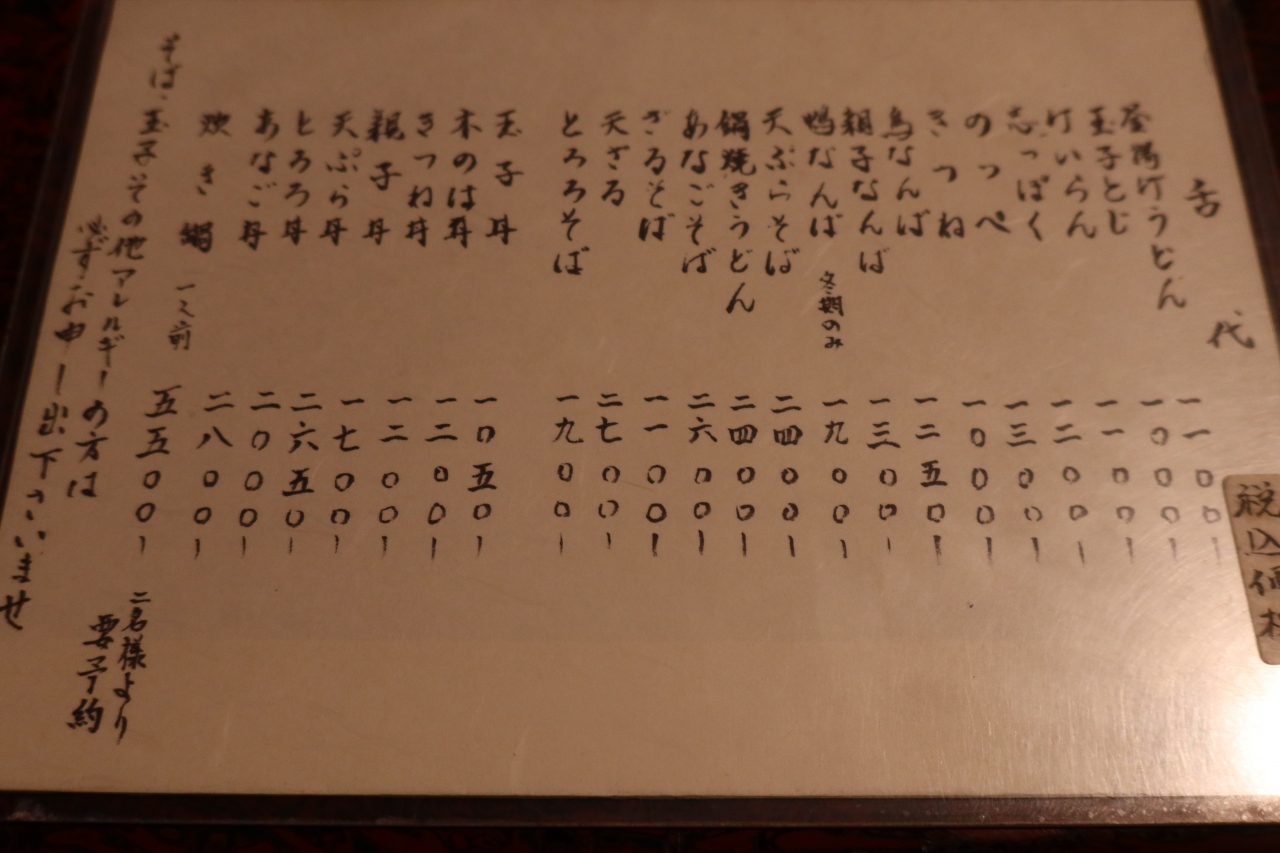 税込価格
舌代
釜揚げうどん 一一〇〇ー
玉子とじ 一〇〇〇ー
けいらん 一一〇〇ー
志っぽく 一二〇〇ー
のっぺ 一三〇〇ー
きつね 一〇〇〇ー
鳥なんば 一二五〇ー
親子なんば 一三〇〇ー
鴨なんば 冬期のみ 一九〇〇ー
天ぷらそば 二四〇〇ー
鍋焼きうどん 二四〇〇ー
あなごそば 二六〇〇ー
ざるそば 一一〇〇ー
天ざる 二七〇〇ー
とろろそば 一九〇〇ー
玉子丼 一〇五〇ー
木のは丼 一二〇〇ー
きつね丼 一二〇〇ー
親子丼 一七〇〇ー
天ぷら丼 二六五〇ー
とろろ丼 二〇〇〇ー
あなご丼 二八〇〇ー
炊き鍋 一人前 五五〇〇ー
二名様より
要予約
そば、玉子その他アレルギーの方は
必ずお申し出下さいませ